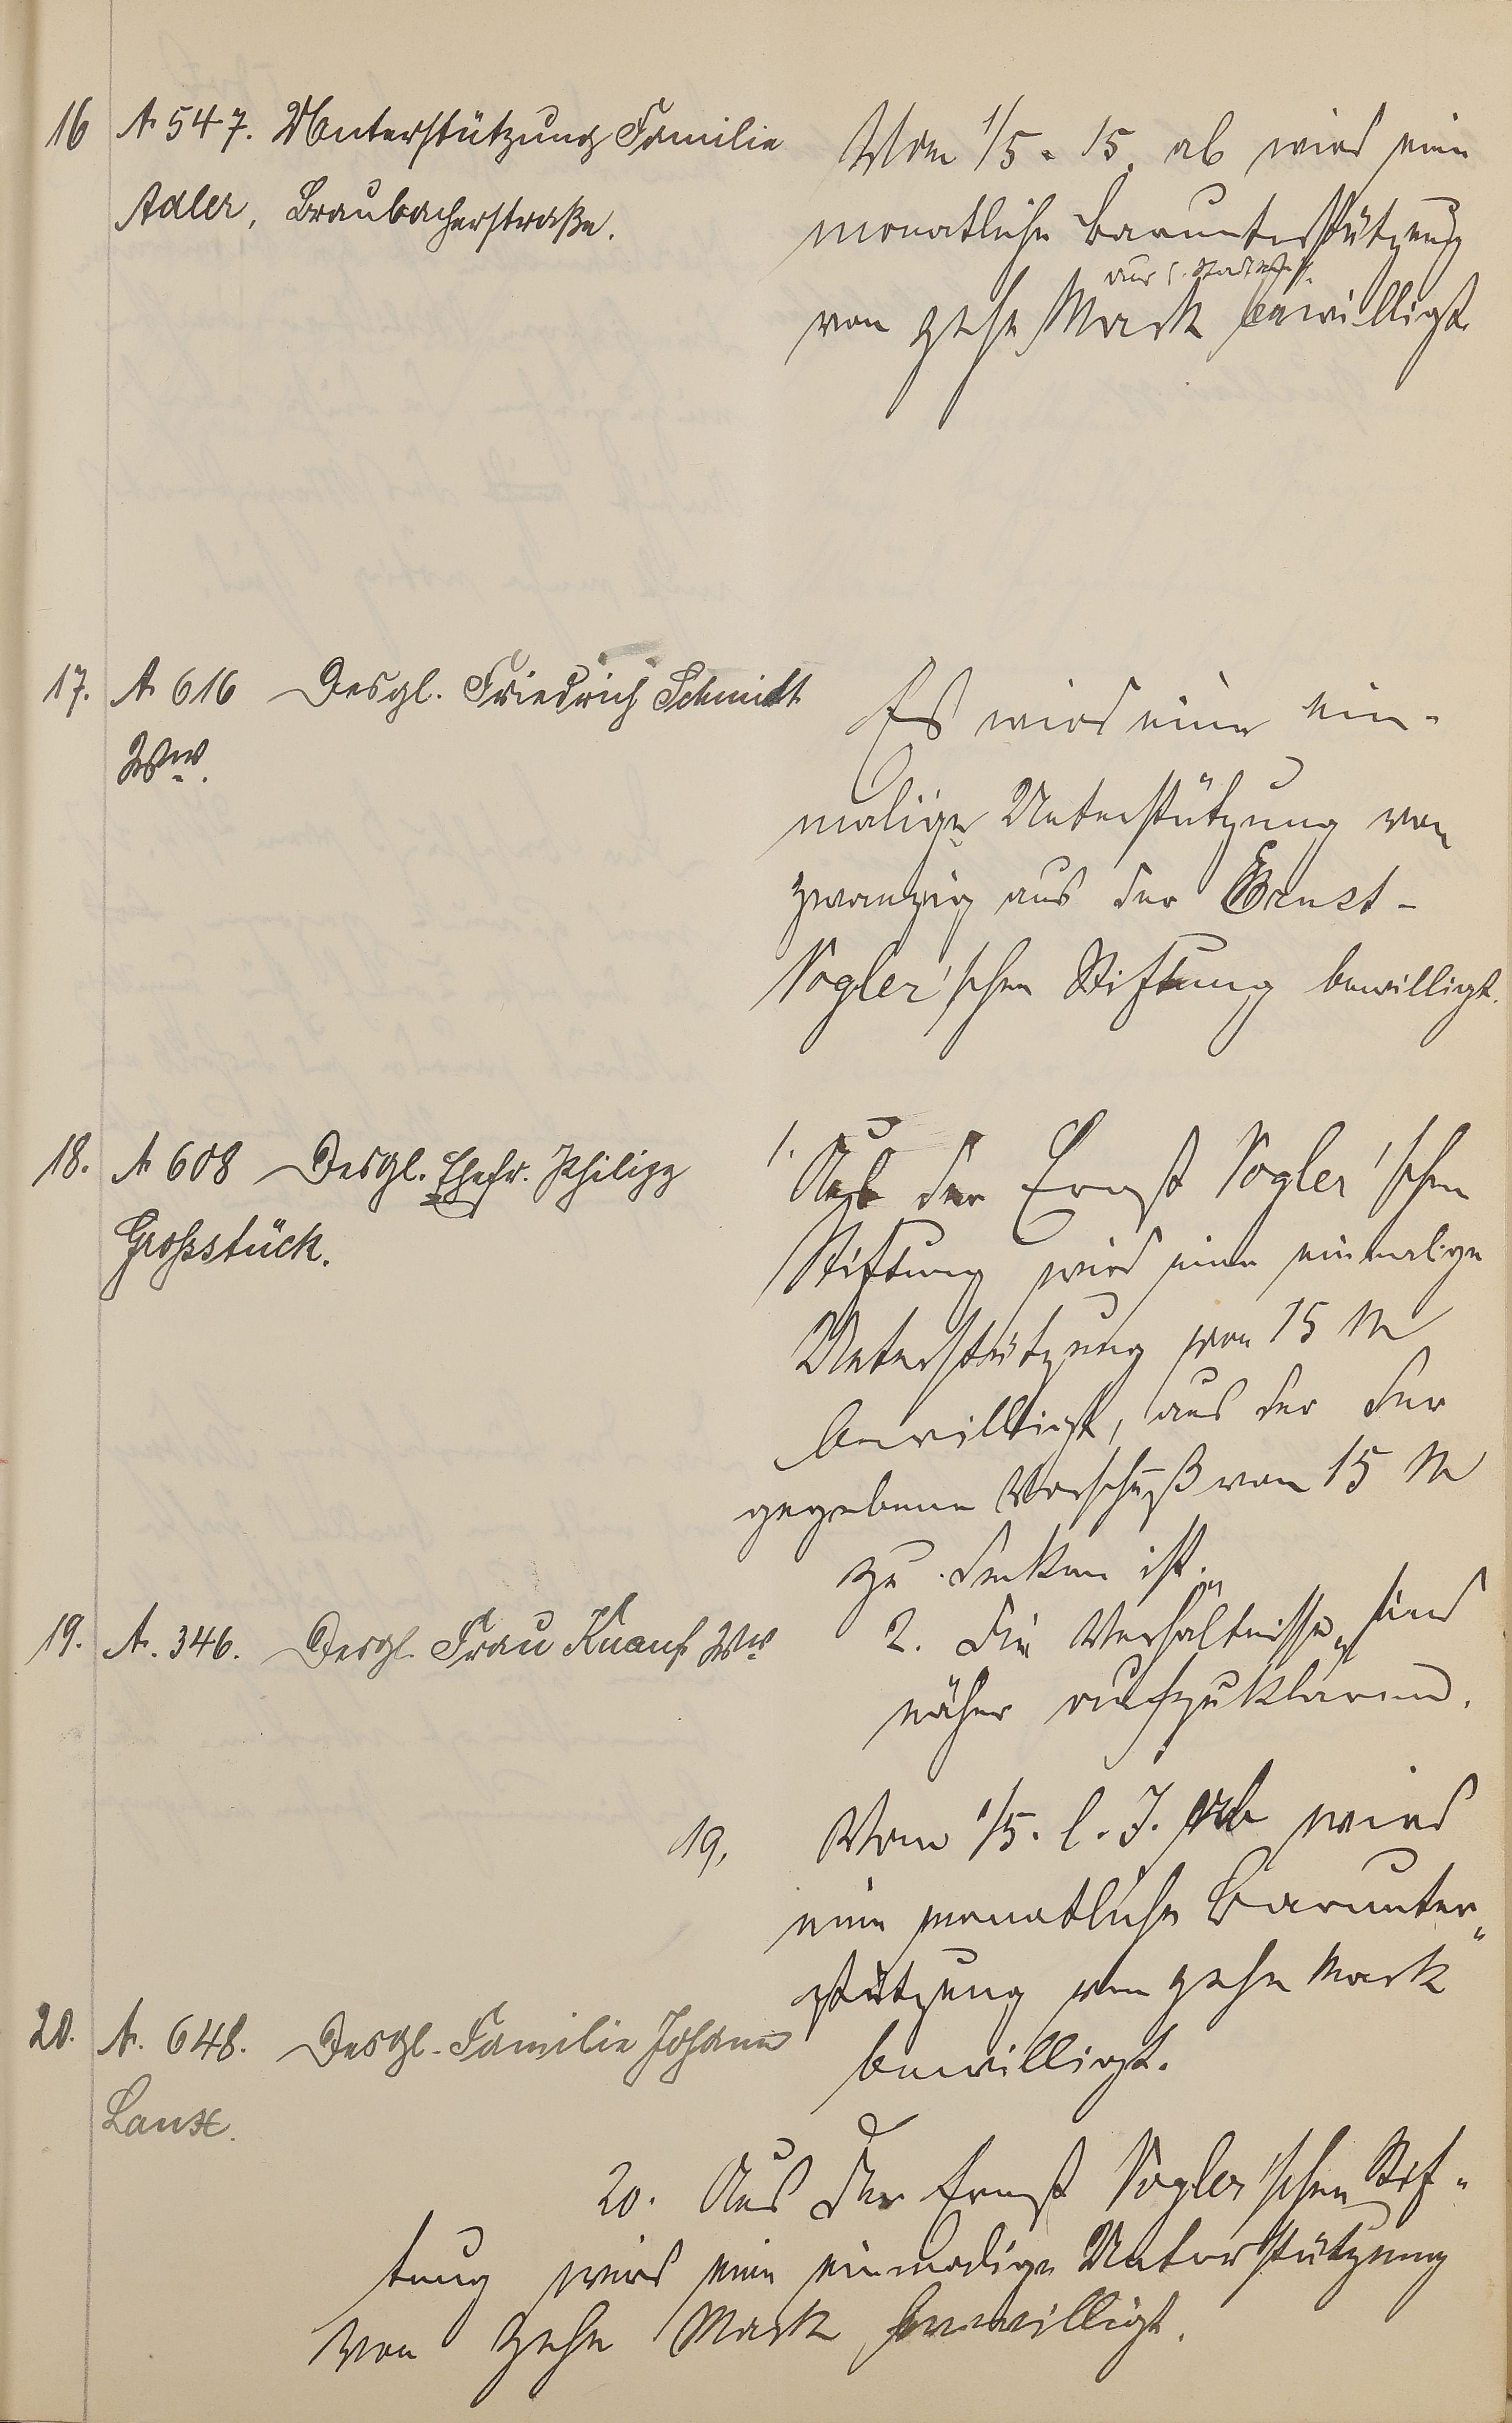 16 A. 547. Unterstützung Familie
Adler, Braubacherstraße.
Vom 1/5. 15. ab wird eine
monatliche Barunterstützung
aus
von zehn Mark bewilligt.
17. A. 616 Desgl. Friedrich Schmidt
Ww.
Es wird eine ein-
malige Unterstützung von
zwanzig aus der Ernst-
Vogler'schen Stiftung bewilligt.
18. A. 608 Desgl. Ehefr. Philipp
Großstück.
1. Aus der Ernst Vogler'schen
Stiftung wird eine einmalige
Unterstützung von 15 M
bewilligt, aus der der
gegebene Vorschuß von 15 M
zu decken ist.
2. Die Verhältnisse sind
näher aufzuklären.
19. A. 346. Desgl. Frau Knauf Ww
19. Vom 1/5. l. J. ab wird
eine monatliche Barunter-
stützung von zehn Mark
bewilligt.
20. A. 648. Desgl. Familie Johann
Laux.
20. Aus der Ernst Vogler'schen Stif-
tung wird eine einmalige Unterstützung
von zehn Mark bewilligt.